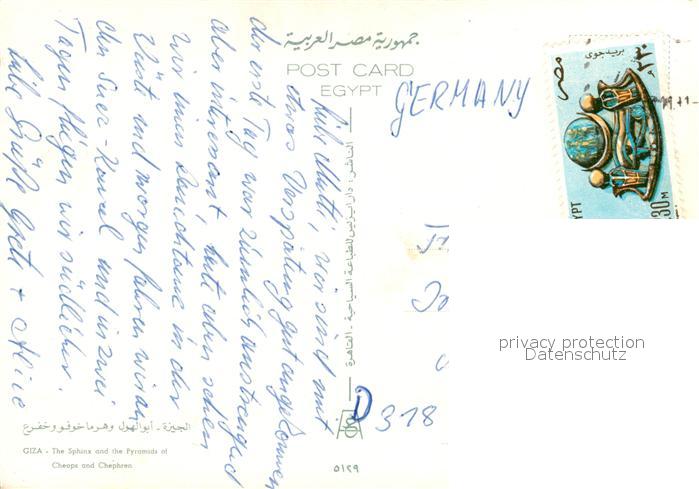 جمهورية مصر العربية
POST CARD
EGYPT
GERMANY
بريد جوى
مصر
EGYPT
30 M
wir sind mit
etwas Verspätung gut angekommen
der erste Tag war ziemlich anstrengend
aber interessant, hatte aber schon
wir einen in der
und morgen fahren wir an
den Suez-Kanal und in zwei
Tagen fliegen wir südlicher.
Liebe Grüße +
الناشر: دار للطباعة السياحية - القاهرة
D 318
الجيزة - أبو الهول وهرما خوفو وخفرع
GIZA - The Sphinx and the Pyramids of
Cheops and Chephren
٥١٢٩
privacy protection
Datenschutz